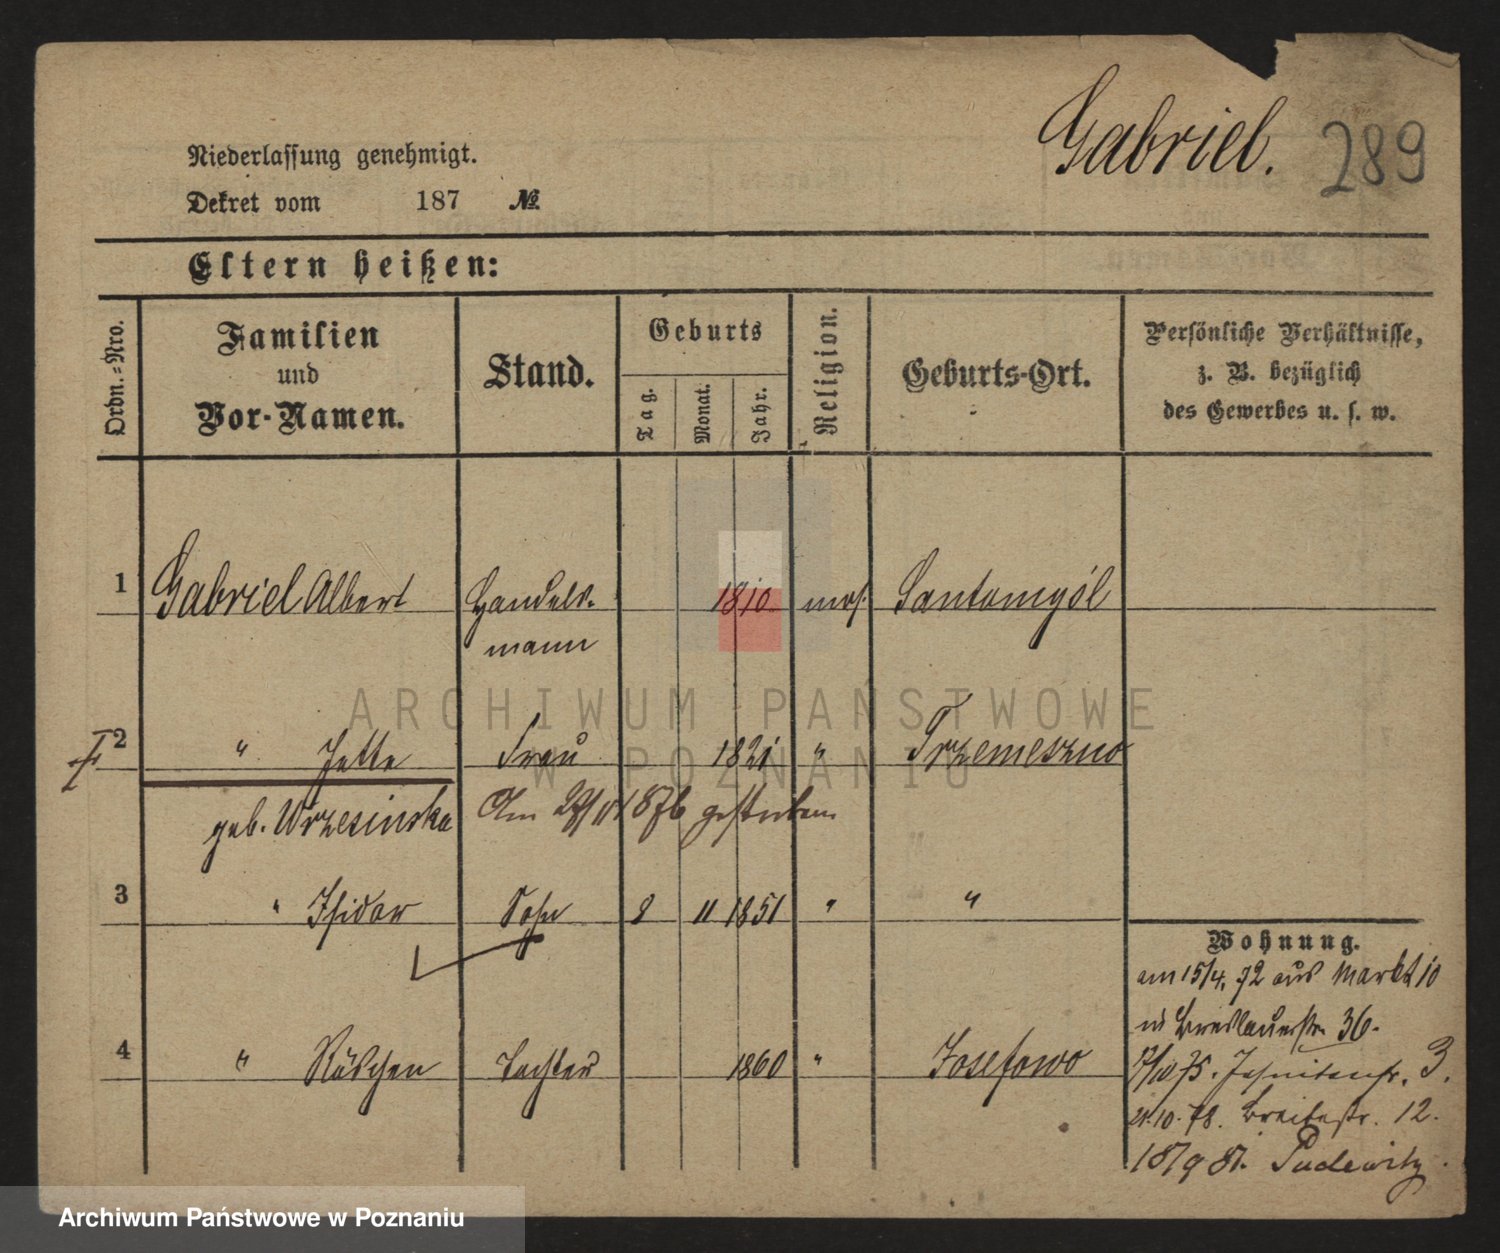 Gabriel. 289
Niederlassung genehmigt.
Dekret vom 187 №
Eltern heißen:
Ordn.-Nro.
Familien
und
Vor-Namen.
Stand.
Geburts
Tag.
Monat.
Jahr.
Religion.
Geburts-Ort.
Persönliche Verhältnisse,
z. B. bezüglich
des Gewerbes u. s. w.
1 Gabriel Albert Handels- 1810 mos. Santomyśl
mann
2 " Jette Frau 1821 " Trzemeszno
geb. Wrzesinska Am gestorben
3 " Isidor Sohn 8 11 1851 " "
4 " Röschen Tochter 1860 " Josefowo
Wohnung.
am 15/4. 72 aus Markt 10
n Breslauerstr. 36.
75. Jesuitenstr. 3.
21.10.78. Breitestr. 12.
1879 Pudewitz.
ARCHIWUM PAŃSTWOWE
W POZNANIU
Archiwum Państwowe w Poznaniu